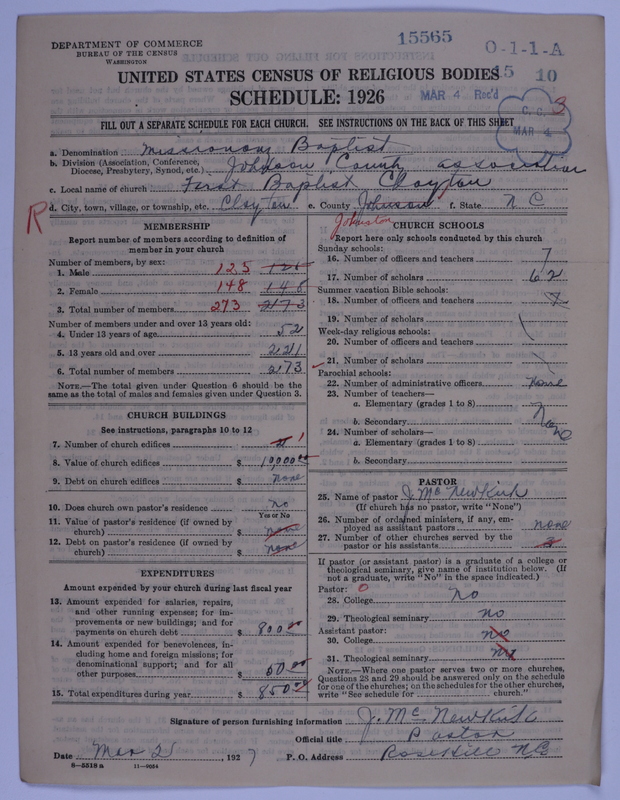 DEPARTMENT OF COMMERCE
BUREAU OF THE CENSUS
WASHINGTON
15565
O-1-1-A
15 10
MAR 4 Rec'd
C. C. 3
MAR 4
UNITED STATES CENSUS OF RELIGIOUS BODIES
SCHEDULE: 1926
FILL OUT A SEPARATE SCHEDULE FOR EACH CHURCH. SEE INSTRUCTIONS ON THE BACK OF THIS SHEET
a. Denomination Missionary Baptist
b. Division (Association, Conference, Diocese, Presbytery, Synod, etc.) Johnson County association
c. Local name of church First Baptist Clayton
R d. City, town, village, or township, etc. Clayton e. County Johnson f. State N C
Johnston
MEMBERSHIP
Report number of members according to definition of
member in your church
Number of members, by sex:
1. Male 125 125
2. Female 148 148
3. Total number of members 273 273
Number of members under and over 13 years old:
4. Under 13 years of age 52
5. 13 years old and over 221
6. Total number of members 273
NOTE.—The total given under Question 6 should be the
same as the total of males and females given under Question 3.
CHURCH BUILDINGS
See instructions, paragraphs 10 to 12
7. Number of church edifices 1
8. Value of church edifices $ 10,000 00
9. Debt on church edifices $ none
10. Does church own pastor's residence no
Yes or No
11. Value of pastor's residence (if owned by
church) $ none
12. Debt on pastor's residence (if owned by
church) $ none
EXPENDITURES
Amount expended by your church during last fiscal year
13. Amount expended for salaries, repairs,
and other running expenses; for im-
provements or new buildings; and for
payments on church debt $ 800 00
14. Amount expended for benevolences, in-
cluding home and foreign missions; for
denominational support; and for all
other purposes $ 50 00
15. Total expenditures during year $ 850 00
CHURCH SCHOOLS
Report here only schools conducted by this church
Sunday schools:
16. Number of officers and teachers 7
17. Number of scholars 62
Summer vacation Bible schools:
18. Number of officers and teachers
19. Number of scholars
Week-day religious schools:
20. Number of officers and teachers
21. Number of scholars
Parochial schools:
22. Number of administrative officers none
23. Number of teachers—
a. Elementary (grades 1 to 8)
b. Secondary None
24. Number of scholars—
a. Elementary (grades 1 to 8)
b. Secondary
PASTOR
25. Name of pastor J. Mc Newkirk
(If church has no pastor, write "None")
26. Number of ordained ministers, if any, em-
ployed as assistant pastors none
27. Number of other churches served by the
pastor or his assistants
If pastor (or assistant pastor) is a graduate of a college or
theological seminary, give name of institution below. (If
not a graduate, write "No" in the space indicated.)
Pastor: 0
28. College No
29. Theological seminary no
Assistant pastor:
30. College no
31. Theological seminary no
NOTE.—Where one pastor serves two or more churches,
Questions 28 and 29 should be answered only on the schedule
for one of the churches; on the schedules for the other churches,
write "See schedule for church."
Signature of person furnishing information J. Mc Newkirk
Official title Pastor
Date Mar 2 1927 P. O. Address Rosehill NC
8-5518 a 11-9054